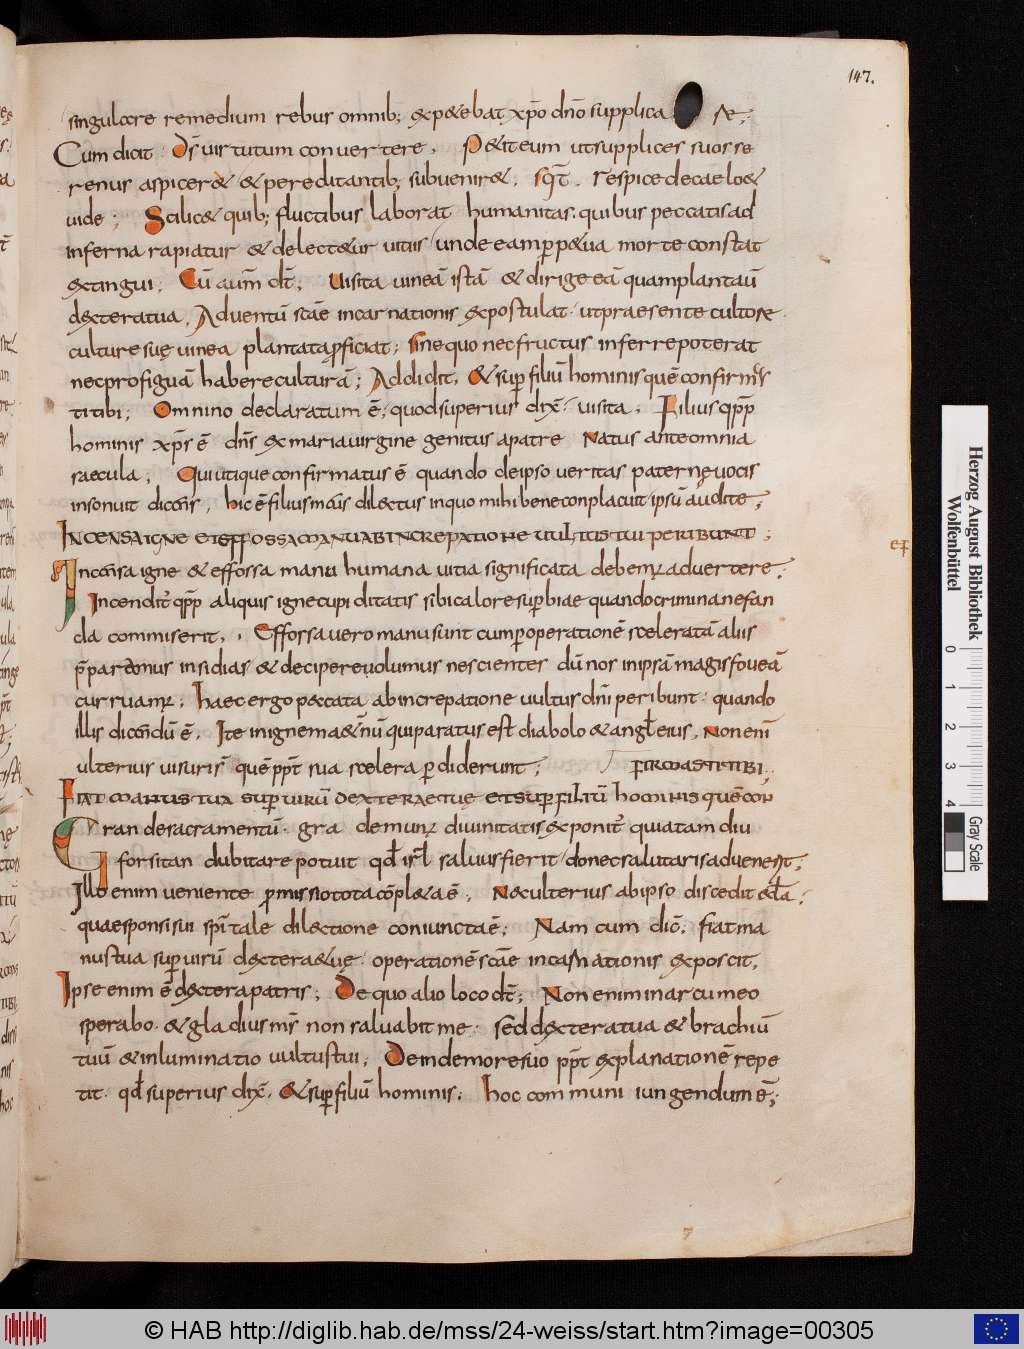 147.
singulare remedium rebus omnib; exp&ebat xp̄o dn̄o supplica se;
Cum dicit d̄s virtutum convertere. P&it eum ut supplices suos se
renus aspicer& & pereditantib; subvenir&. sq̄t. respice de caelo &
uide; Scilic& quib; fluctibus laborat humanitas. quibus peccatis ad
inferna rapiatur & delect&ur vitiis unde eam p̱p&ua morte constat
extingui; Cū aūm dt̄. Uisita uineā istā & dirige eā quam plantauī
dextera tua. Aduentū sc̄ae incarnationis expostulat. ut praesente cultore
culture sue uinea plantata ꝓficiat; sine quo nec fructus inferre poterat
nec profiguā habere culturā; Addidit. & sup filiū hominis quē confirm
ti tibi; Omnino declaratum ē. quod superius dix̄. uisita. Filius qpp̄
hominis xp̄s ē dn̄s ex maria uirgine genitus a patre Natus ante omnia
saecula; Qui utique confirmatus ē quando de ipso ueritas paterne uocis
insonuit dicens. hic ē filius meus dilectus in quo mihi bene conplacuit ipsū audite;
INCENSA IGNE ET EFFOSSA MANU AB INCREPATIONE UULTUS TUI PERIBUNT;
Incensa igne & effossa manu humana uitia significata debemꝰ aduertere;
Incendit qpp̄ aliquis igne cupiditatis sibi calore superbiae quando crimina nefan
da commiserit. Effossa uero manu sunt cum p̱ operationē sceleratā aliis
p̄paramus insidias & decipere uolumus nescientes dū nos in ipsā magis foueā
curruamꝰ; haec ergo peccata ab increpatione uultus dn̄i peribunt. quando
illis dicendū ē. Ite in ignem aet̄nū qui paratus est diabolo & angl̄ eius. Non enī
ulterius uisuris quē pp̄t sua scelera p̱diderunt; FIRMASTI TIBI.
FIAT MANUS TUA SUPER UIRŪ DEXTERAE TUE ET SUP FILIŪ HOMINIS QUĒ CON
Gran de sacramentū. gra demum diuinitatis exponit quia tam diu
forsitan dubitare potuit qd̄ isrl̄ saluus fierit donec salutaris adueness&;
Illo enim ueniente ꝓmissio tota cōpl&a ē; Nec ulterius ab ipso discedit eccl̄a;
quae sponsi sui sp̄itale dilectione coniuncta ē; Nam cum dic̄. fiat ma
nus tua sup uirū dexterae tue. operationē sc̄ae incarnationis exposcit,
Ipse enim ē dextera patris; De quo alio loco dt̄; Non enim in arcu meo
sperabo. & gladius ms̄ non saluabit me. sed dextera tua & brachiū
tuū & inluminatio uultus tui; Dein de more suo pp̄t explanationē repe
tit. qd̄ superius dix̄. & sup filiū hominis; hoc communi iungendum ē;
Herzog August Bibliothek
Wolfenbüttel
0 1 2 3 4
Gray Scale
© HAB http://diglib.hab.de/mss/24-weiss/start.htm?image=00305